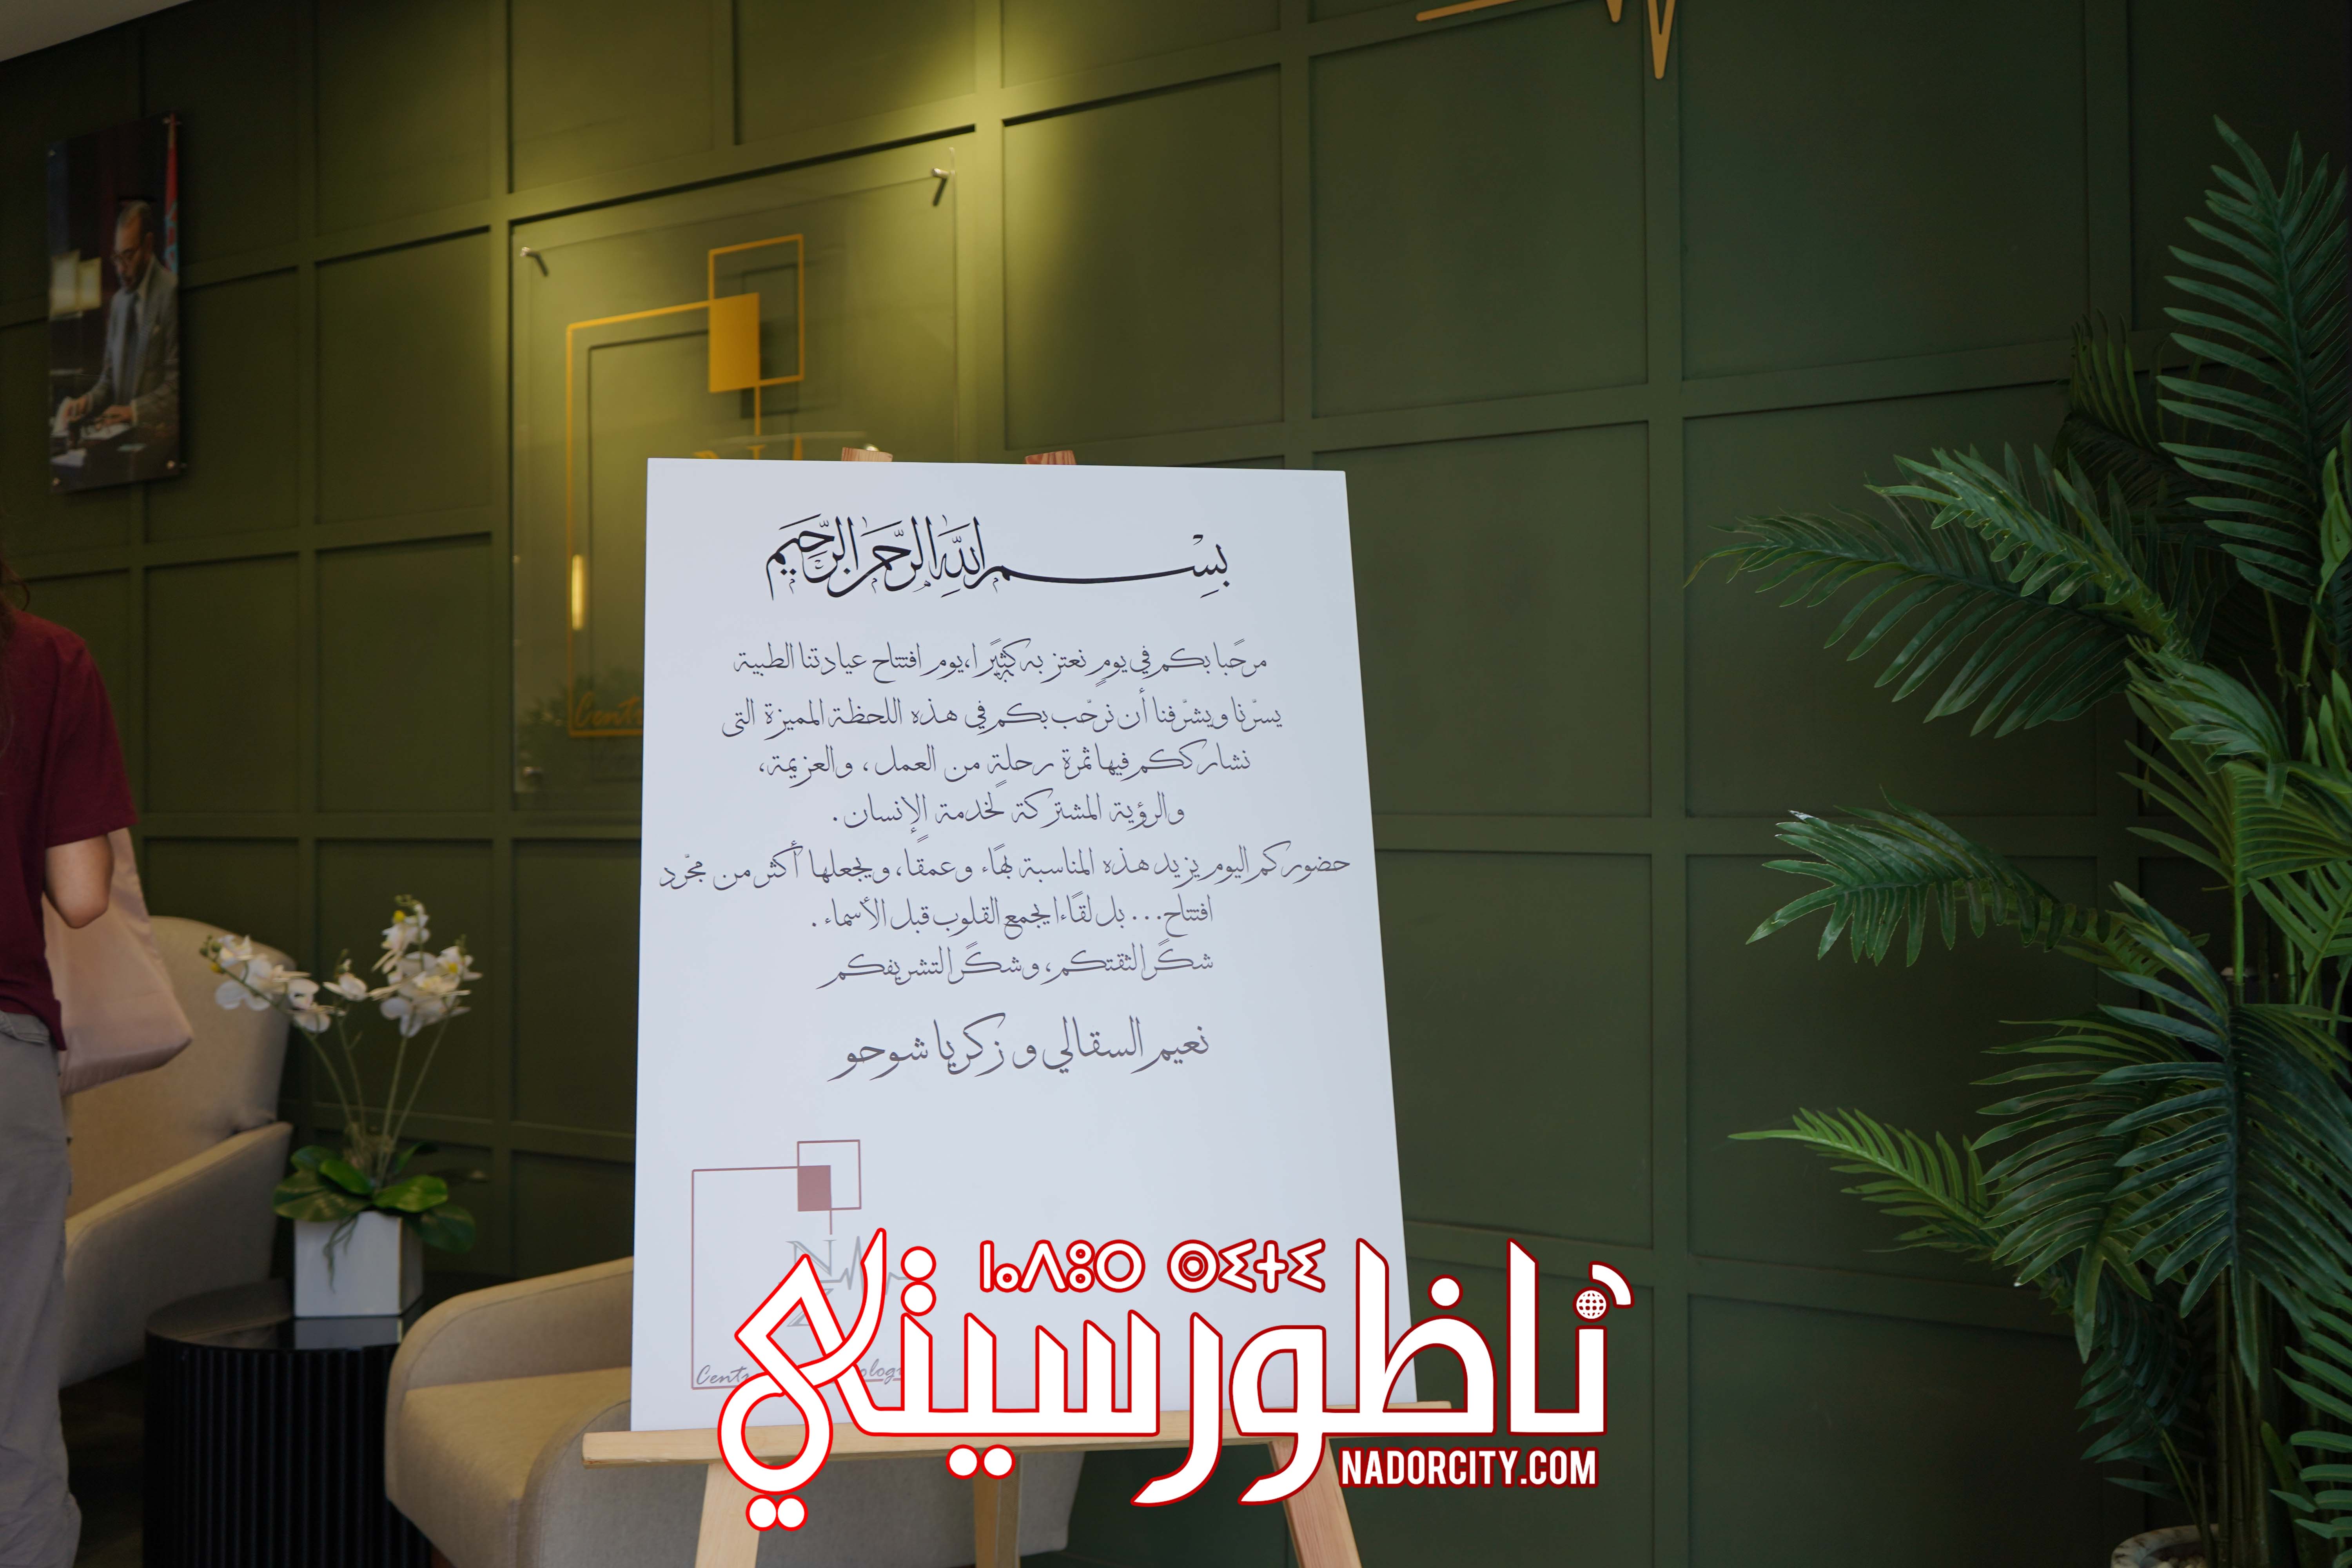 بِسْمِ اللَّهِ الرَّحْمَنِ الرَّحِيمِ
مرحَبا بكم في يومٍ نعتز به كثيرًا، يوم افتتاح عيادتنا الطبية
يسرّنا ويشرّفنا أن نرحّب بكم في هذه اللحظة المميزة التي
نشارككم فيها ثمرة رحلةٍ من العمل، والعزيمة،
والرؤية المشتركة لخدمة الإنسان.
حضوركم اليوم يزيد هذه المناسبة بهَاء وعمقا، ويجعلها أكثر من مجرّد
افتتاح... بل لقاًءا يجمع القلوب قبل الأسماء.
شكًرا لثقتكم، وشكًرا لتشريفكم
نعيم السقالي و زكريا شوحو
N
Z
Cent
ologi
Cent
ⵏⴰⴷⵓⵔ ⵙⵉⵜⵉ
ناظورسيتي
NADORCITY.COM